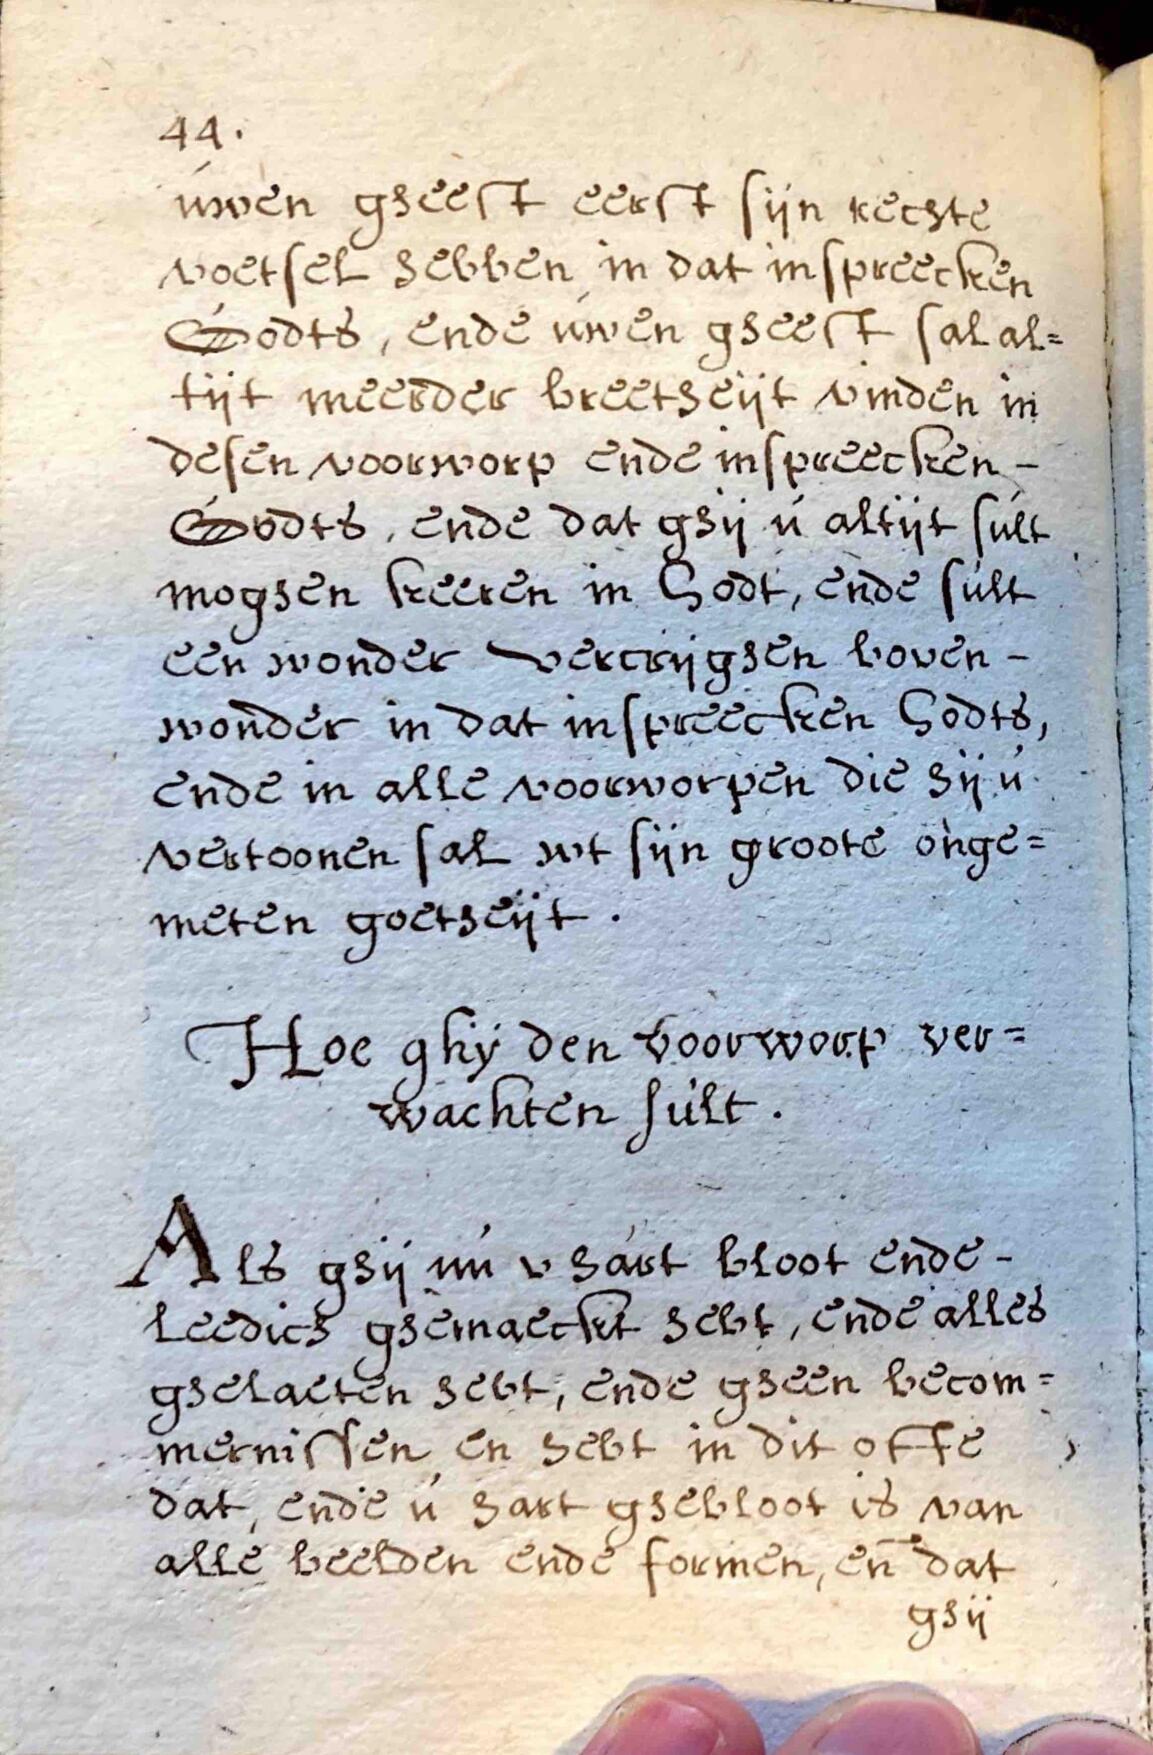 44.
uwen gheest eerst sijn rechte
voetsel hebben in dat inspreecken
Godts, ende uwen gheest sal al=
tijt meerder breetheijt vinden in
desen voorworp ende inspreecken –
Godts, ende dat ghij u altijt sult
moghen keeren in Godt, ende sult
een wonder vercrijghen boven –
wonder in dat inspreecken Godts,
ende in alle voorworpen die hij u
vertoonen sal wt sijn groote onge=
meten goetheijt.
Hoe ghij den voorworp ver=
wachten sult.
Als ghij nu v hart bloot ende –
leedich ghemaeckt hebt, ende alles
ghelaeten hebt, ende gheen becom=
mernissen en hebt in dit offe
dat, ende u hart ghebloot is van
alle beelden ende formen, en̄ dat
ghij